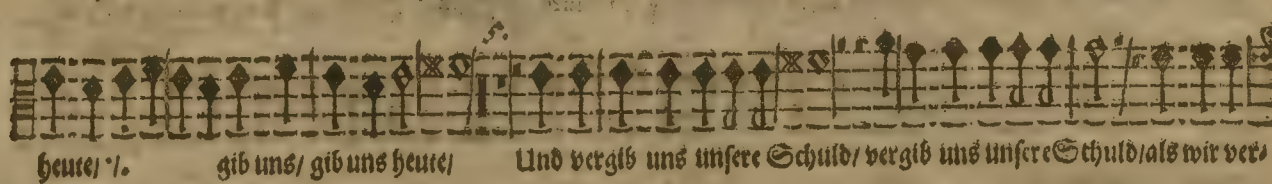 5.
heute/ ·/. gib uns/ gib uns heute/ Und vergib uns unsere Schuld/ vergib uns unsere Schuld/ als wir ver⸗